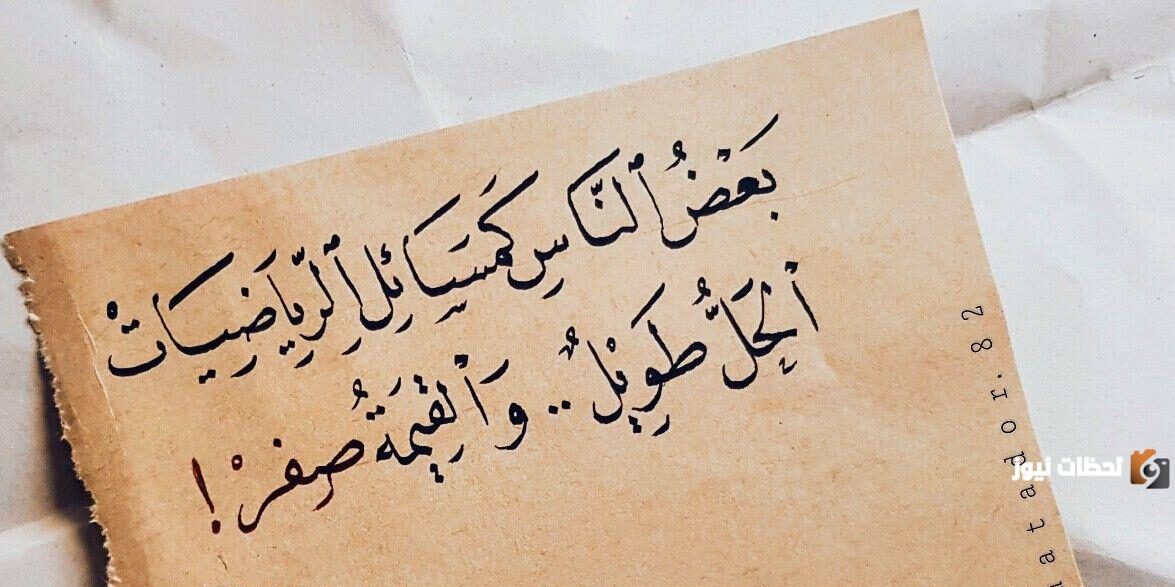 بَعْضُ ٱلنَّاسِ كَمَسَائِلِ ٱلرِّيَاضِيَاتْ
ٱلْحَلُّ طَوِيْلٌ.. وَٱلْقِيمَةُ صِفْرْ!
atador.82
لحظات نيوز